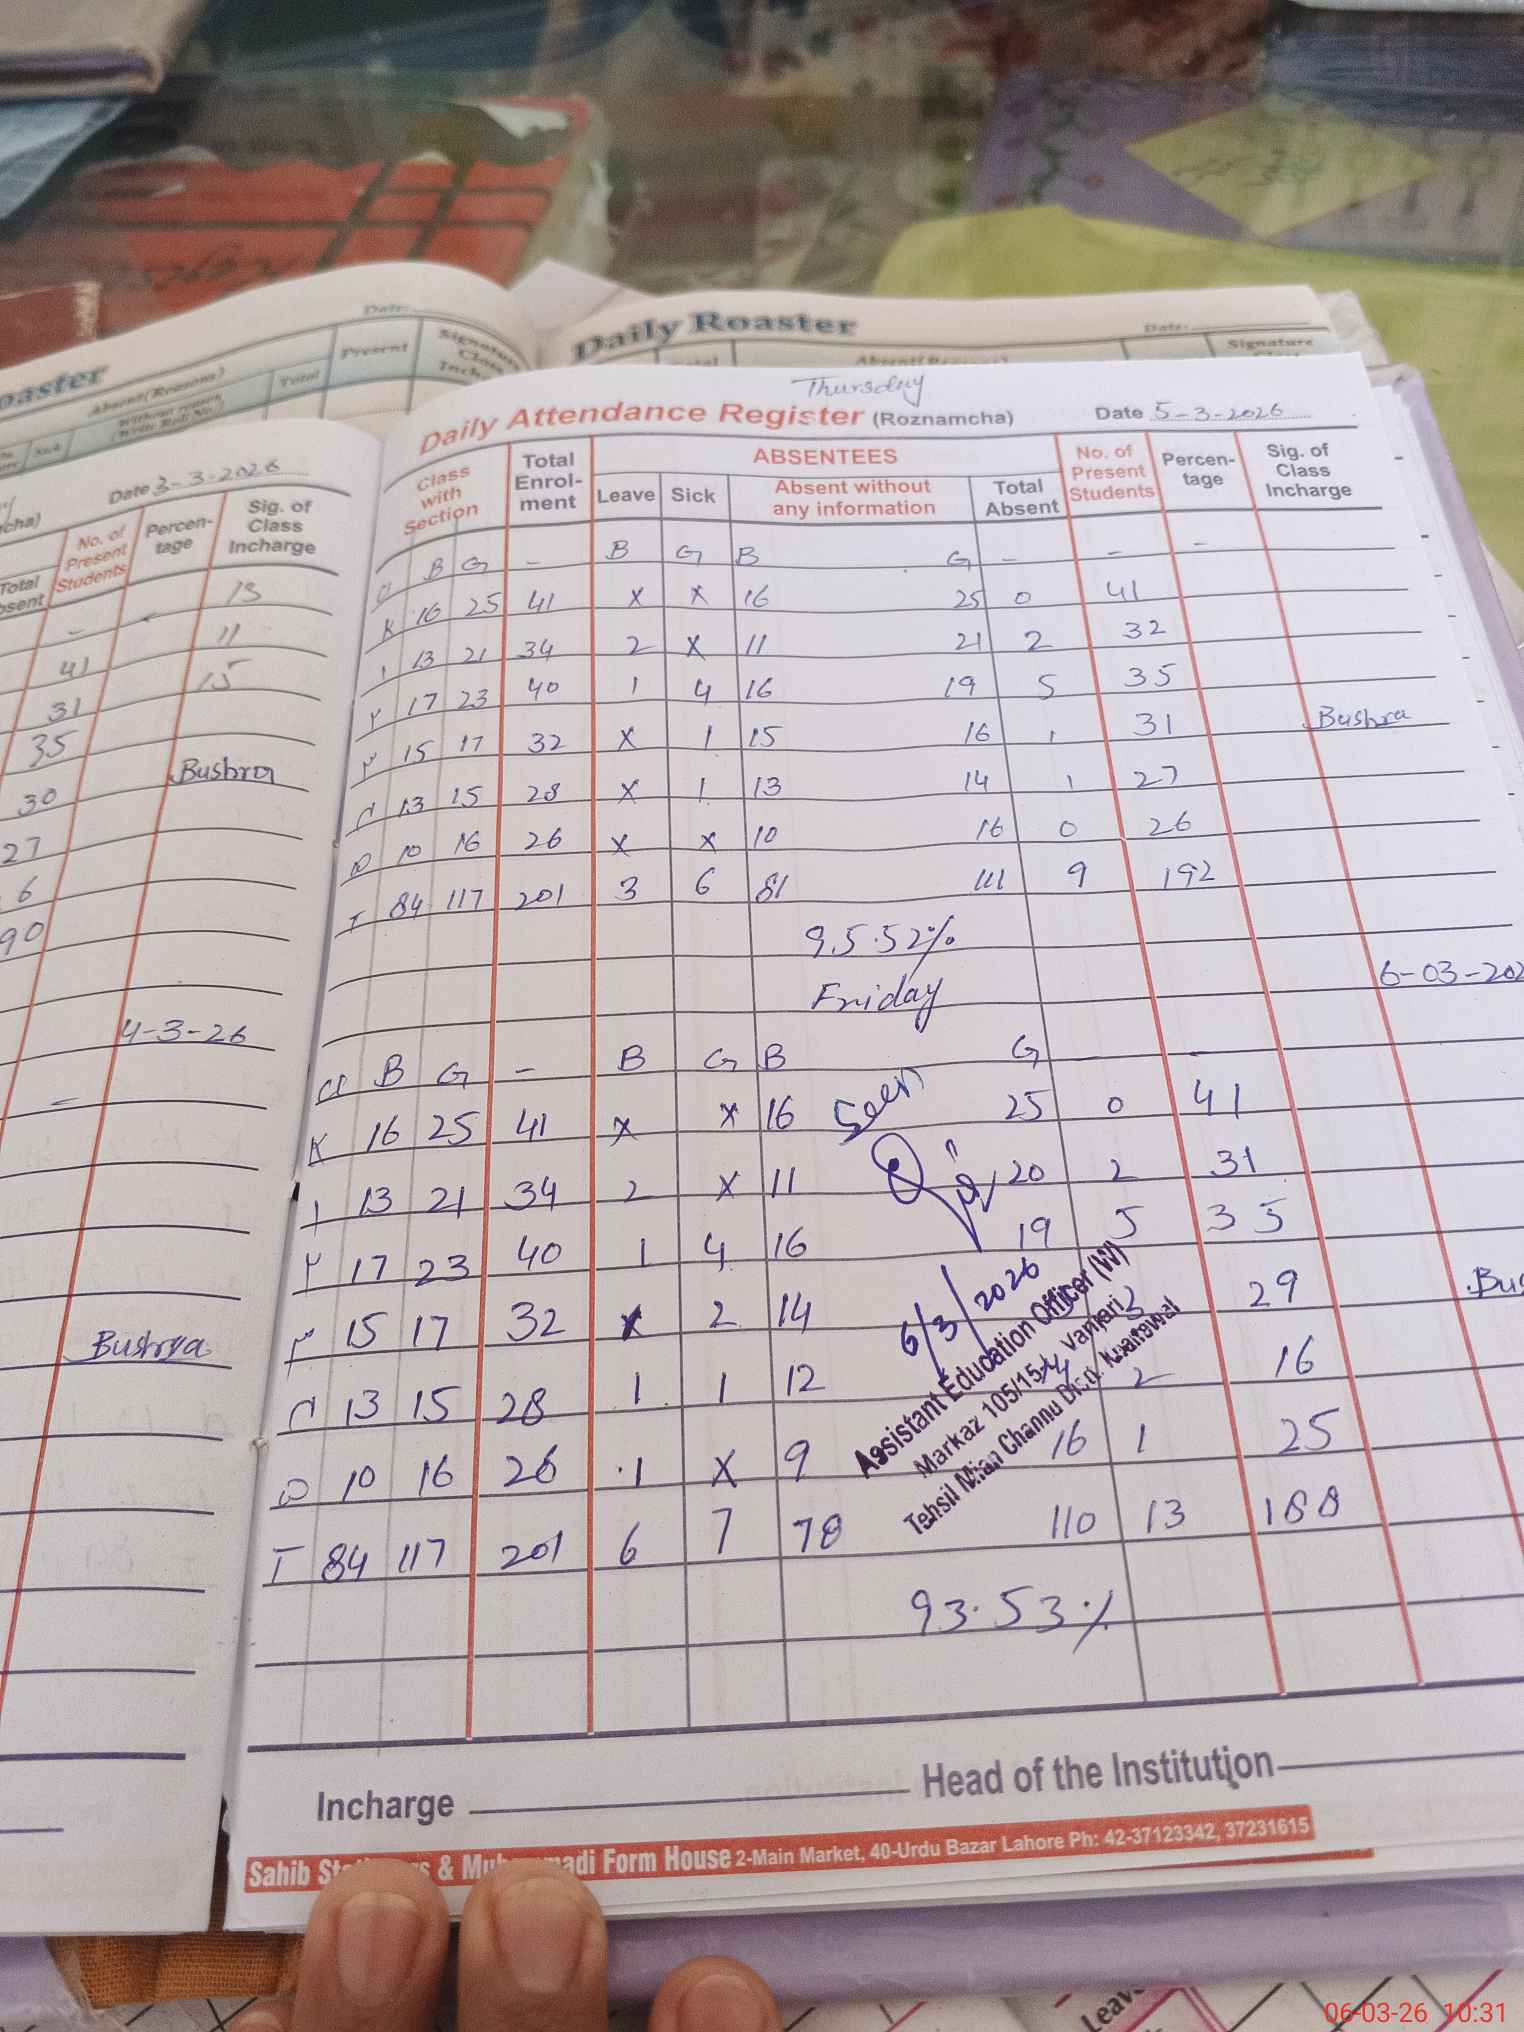 Daily Roaster
Date:
Signature
Absent(Reasons)
Total
Present
Signature
Class
Date 3-3-2026
No. of Present Students
Percen-tage
Sig. of Class Incharge
13
11
41
15
31
35
Bushra
30
27
90
4-3-26
Bushrya
Thursday
Daily Attendance Register (Roznamcha) Date 5-3-2026
Class with Section
Total Enrol-ment
ABSENTEES
Leave Sick Absent without any information Total Absent
No. of Present Students
Percen-tage
Sig. of Class Incharge
B G - B G B G - - -
K 16 25 41 x x 16 25 0 41
۱ 13 21 34 2 x 11 21 2 32
۲ 17 23 40 1 4 16 19 5 35
۳ 15 17 32 x 1 15 16 1 31 Bushra
۴ 13 15 28 x 1 13 14 1 27
۵ 10 16 26 x x 10 16 0 26
T 84 117 201 3 6 81 111 9 192
95.52%
Friday 6-03-202
B G - B G B G - -
K 16 25 41 x x 16 25 0 41
۱ 13 21 34 2 x 11 20 2 31
۲ 17 23 40 1 4 16 19 5 35
۳ 15 17 32 x 2 14 3 29 Bus
۴ 13 15 28 1 1 12 14 2 16
۵ 10 16 26 1 x 9 16 1 25
T 84 117 201 6 7 78 110 13 188
93.53%
Seen
6/3/2026
Assistant Education Officer (W)
Markaz 105/15-L Vanjari
Tehsil Mian Channu Distt. Khanewal
Incharge Head of the Institution
& Form House 2-Main Market, 40-Urdu Bazar Lahore Ph: 42-37123342, 37231615
Leave
06-03-26 10:31